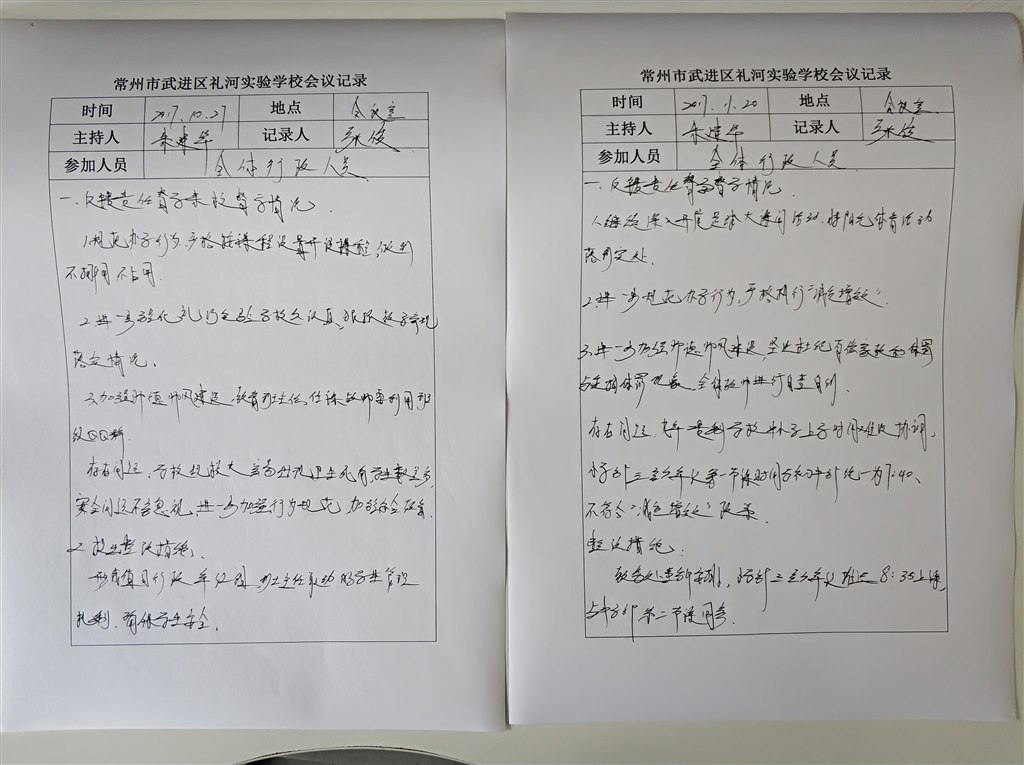 常州市武进区礼河实验学校会议记录
时间 2017.10.27 地点 会议室
主持人 朱建华 记录人 张俊
参加人员 全体行政人员
一、反馈责任督学来校督学情况
1.规范办学行为,严格按课程设置开设课程,做到
不挪用不占用.
2.进一步强化礼河实验学校
落实情况.
3.加强师德师风建设,教育班主任、任课教师要利用班
级QQ群.
存在问题:学校
安全问题不容忽视,进一步加强行为规范,加强安全教育.
二、提出整改措施.
形成值日行政、年级组、班主任联动的学生管理
机制,确保学生安全.
常州市武进区礼河实验学校会议记录
时间 2017.11.20 地点 会议室
主持人 朱建华 记录人 张俊
参加人员 全体行政人员
一、反馈责任督学督学情况
1.继续深入开展足球大课间活动,将阳光体育活动
落到实处.
2.进一步规范办学行为,严格执行“减负增效”.
3.进一步加强师德师风建设,坚决杜绝有偿家教和体罚
与变相体罚现象,全体教师进行自查自纠.
存在问题:九年一贯制学校中小学上学时间难以协调,
小学部三至六年级第一节课时间与初中部统一为7:40,
不符合“减负增效”政策.
整改措施:
教务处重新安排,小学部三至六年级推迟8:35上课,
与中学部第二节课同步.